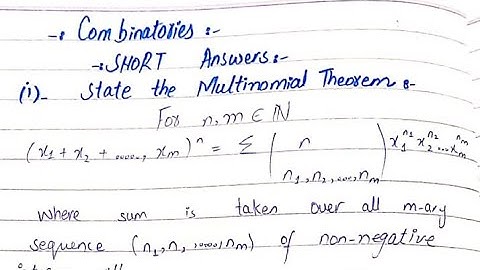 -: Combinatories :-
-: SHORT Answers:-
(i)- State the Multinomial Theorem :-
For n, m ∈ ℕ
(x₁ + x₂ + ....., xₘ)ⁿ = Σ ( n ) x₁ⁿ¹ x₂ⁿ² ... xₘⁿᵐ
n₁, n₂, ..., nₘ
where sum is taken over all m-ary
sequence (n₁, n, ...., nₘ) of non-negative